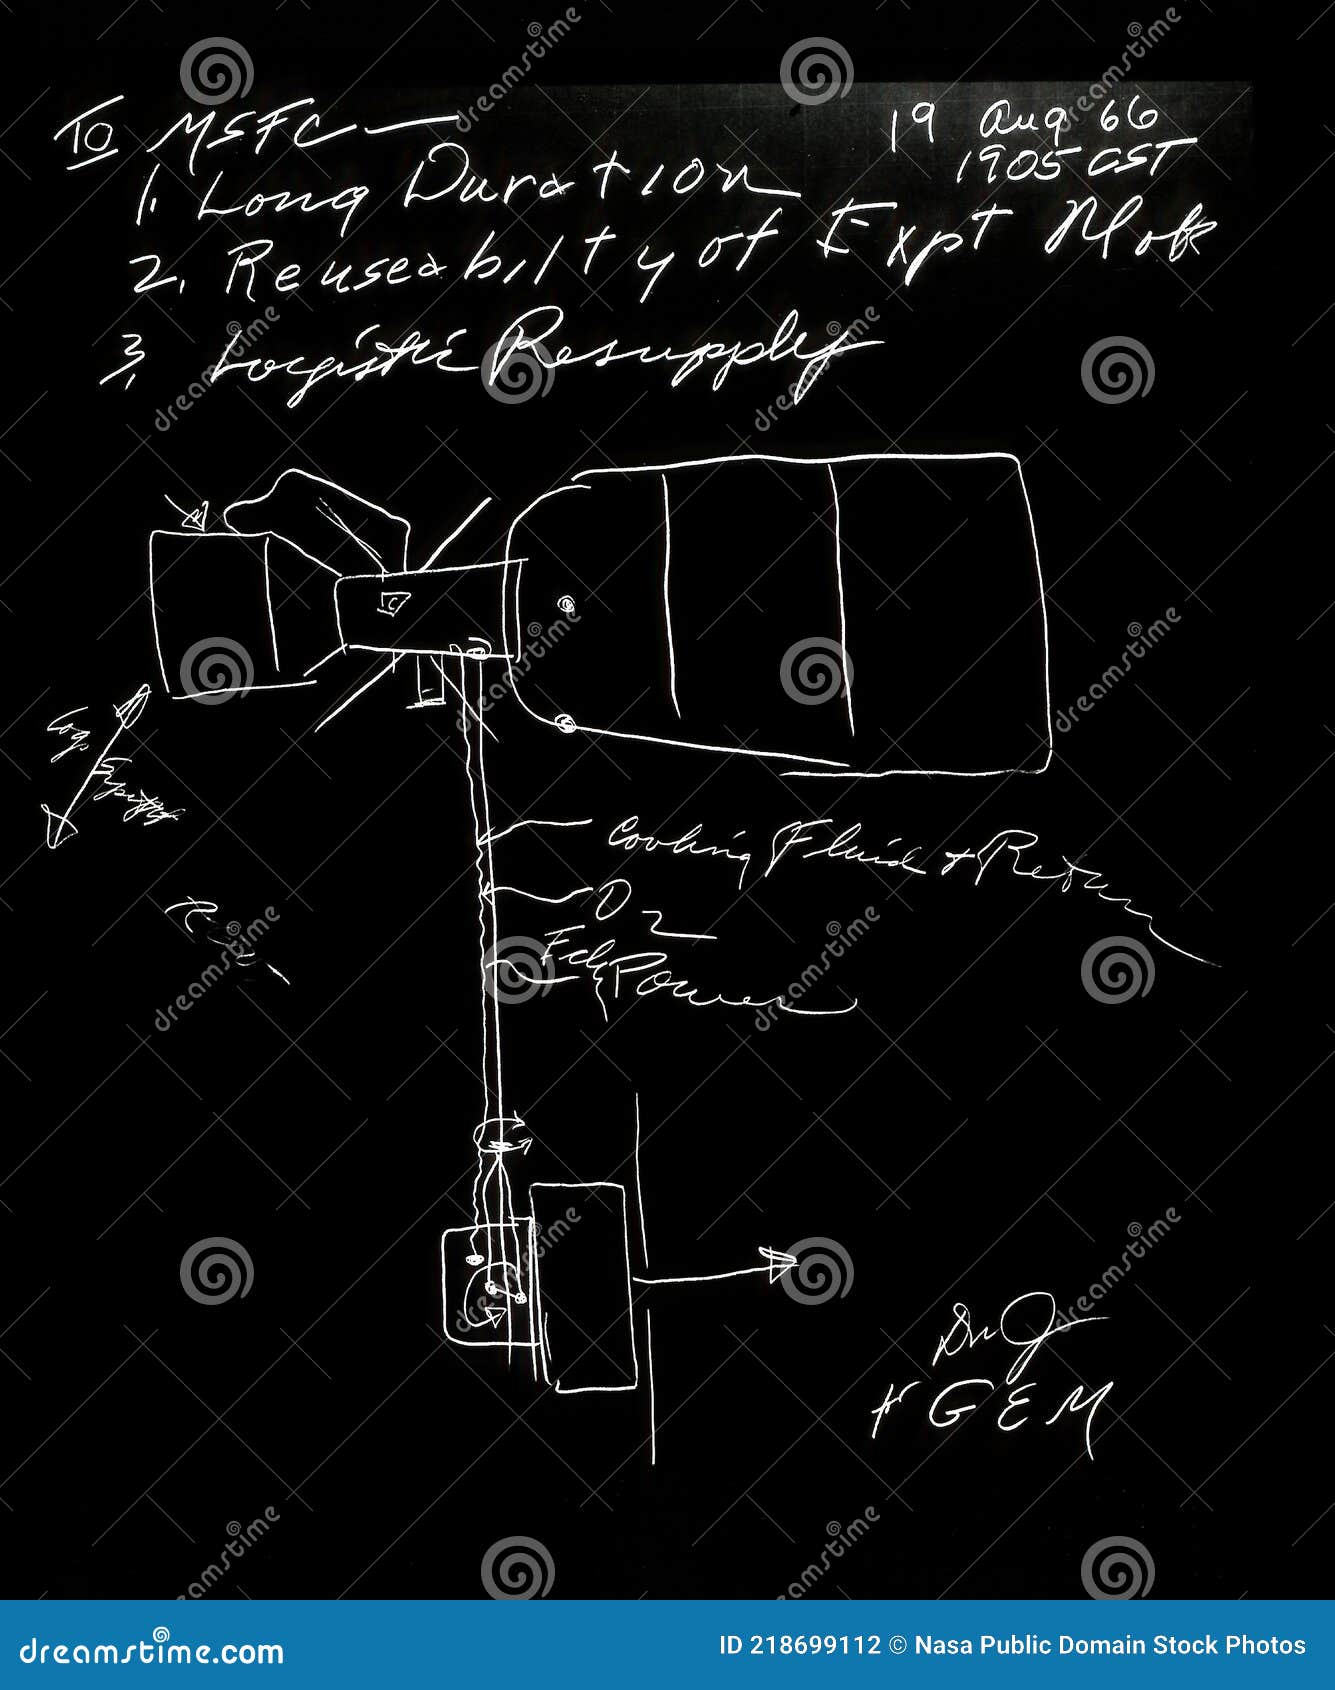 TO MSFC —
19 Aug 66
1905 CST
1. Long Duration
2. Reuseabilty of Expt Mods
3. Logistic Resupply
C
Cooling Fluid + Return
O2
Power
GEM
dreamstime.com
ID 218699112 © Nasa Public Domain Stock Photos